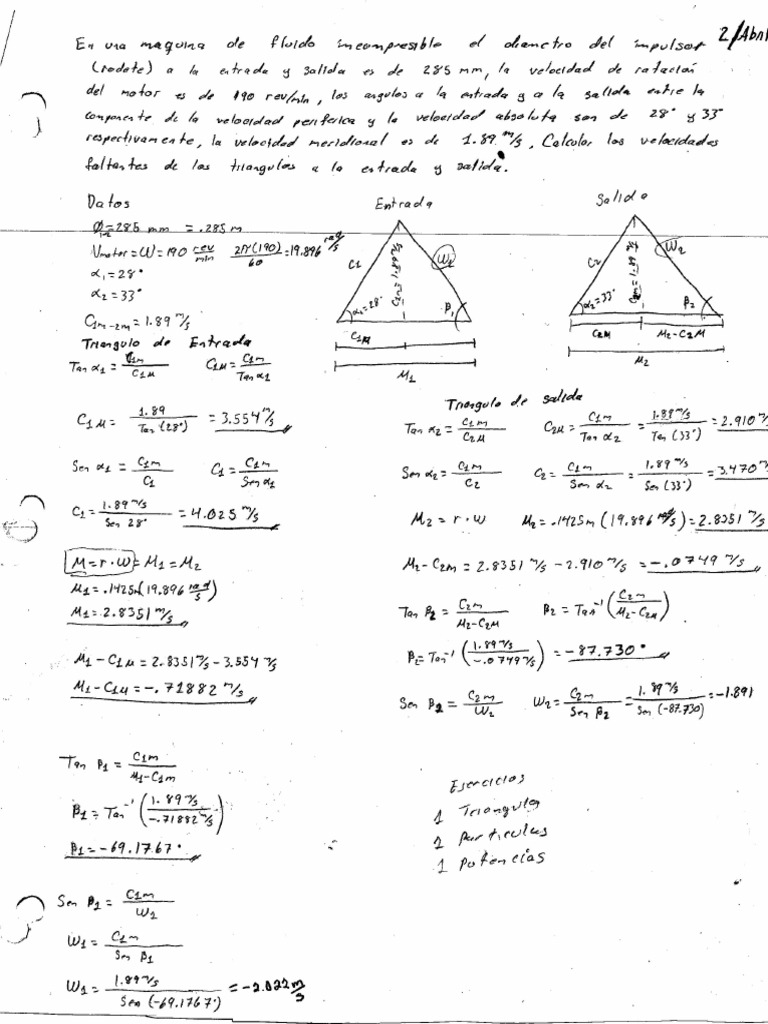 2/Abril
En una maquina de fluido incompresible el diametro del impulsor
(rodete) a la entrada y salida es de 285 mm, la velocidad de rotación
del motor es de 190 rev/min, los angulos a la entrada y a la salida entre la
componente de la velocidad periferica y la velocidad absoluta son de 28° y 33°
respectivamente, la velocidad meridional es de 1.89 m/s, Calcular las velocidades
faltantes de los triangulos a la entrada y salida.
Datos
Ø1-2=285 mm = .285 m
Vmotor=W=190 rev/min 2π(190)/60=19.896 rad/s
α1=28°
α2=33°
C1m-2m=1.89 m/s
Entrada
C1
W1
α1=28°
β1
C1M
M1
Salida
C2
W2
α2=33°
β2
C2M
M2-C2M
M2
Triangulo de Entrada
Tan α1=C1m/C1M C1M=C1m/Tan α1
C1M=1.89/Tan(28°)=3.554 m/s
Sen α1=C1m/C1 C1=C1m/Sen α1
C1=1.89 m/s/Sen 28°=4.025 m/s
M=r·w=M1=M2
M1=.1425m(19.896 rad/s)
M1=2.8351 m/s
M1-C1M=2.8351 m/s-3.554 m/s
M1-C1M=-.71882 m/s
Tan β1=C1m/M1-C1m
β1=Tan⁻¹(1.89 m/s/-.71882 m/s)
β1=-69.1767°
Sen β1=C1m/W1
W1=C1m/Sen β1
W1=1.89 m/s/Sen(-69.1767°)=-2.022 m/s
Triangulo de salida
Tan α2=C1m/C2M C2M=C1m/Tan α2=1.89 m/s/Tan(33°)=2.910 m/s
Sen α2=C1m/C2 C2=C1m/Sen α2=1.89 m/s/Sen(33°)=3.470 m/s
M2=r·w M2=.1425m(19.896 rad/s)=2.8351 m/s
M2-C2m=2.8351 m/s-2.910 m/s=-.0749 m/s
Tan β2=C2m/M2-C2M β2=Tan⁻¹(C2m/M2-C2M)
β2=Tan⁻¹(1.89 m/s/-.0749 m/s)=-87.730°
Sen β2=C2m/W2 W2=C2m/Sen β2=1.89 m/s/Sen(-87.730)=-1.891
Esercicios
1 Triangulos
2 particulas
1 potencias